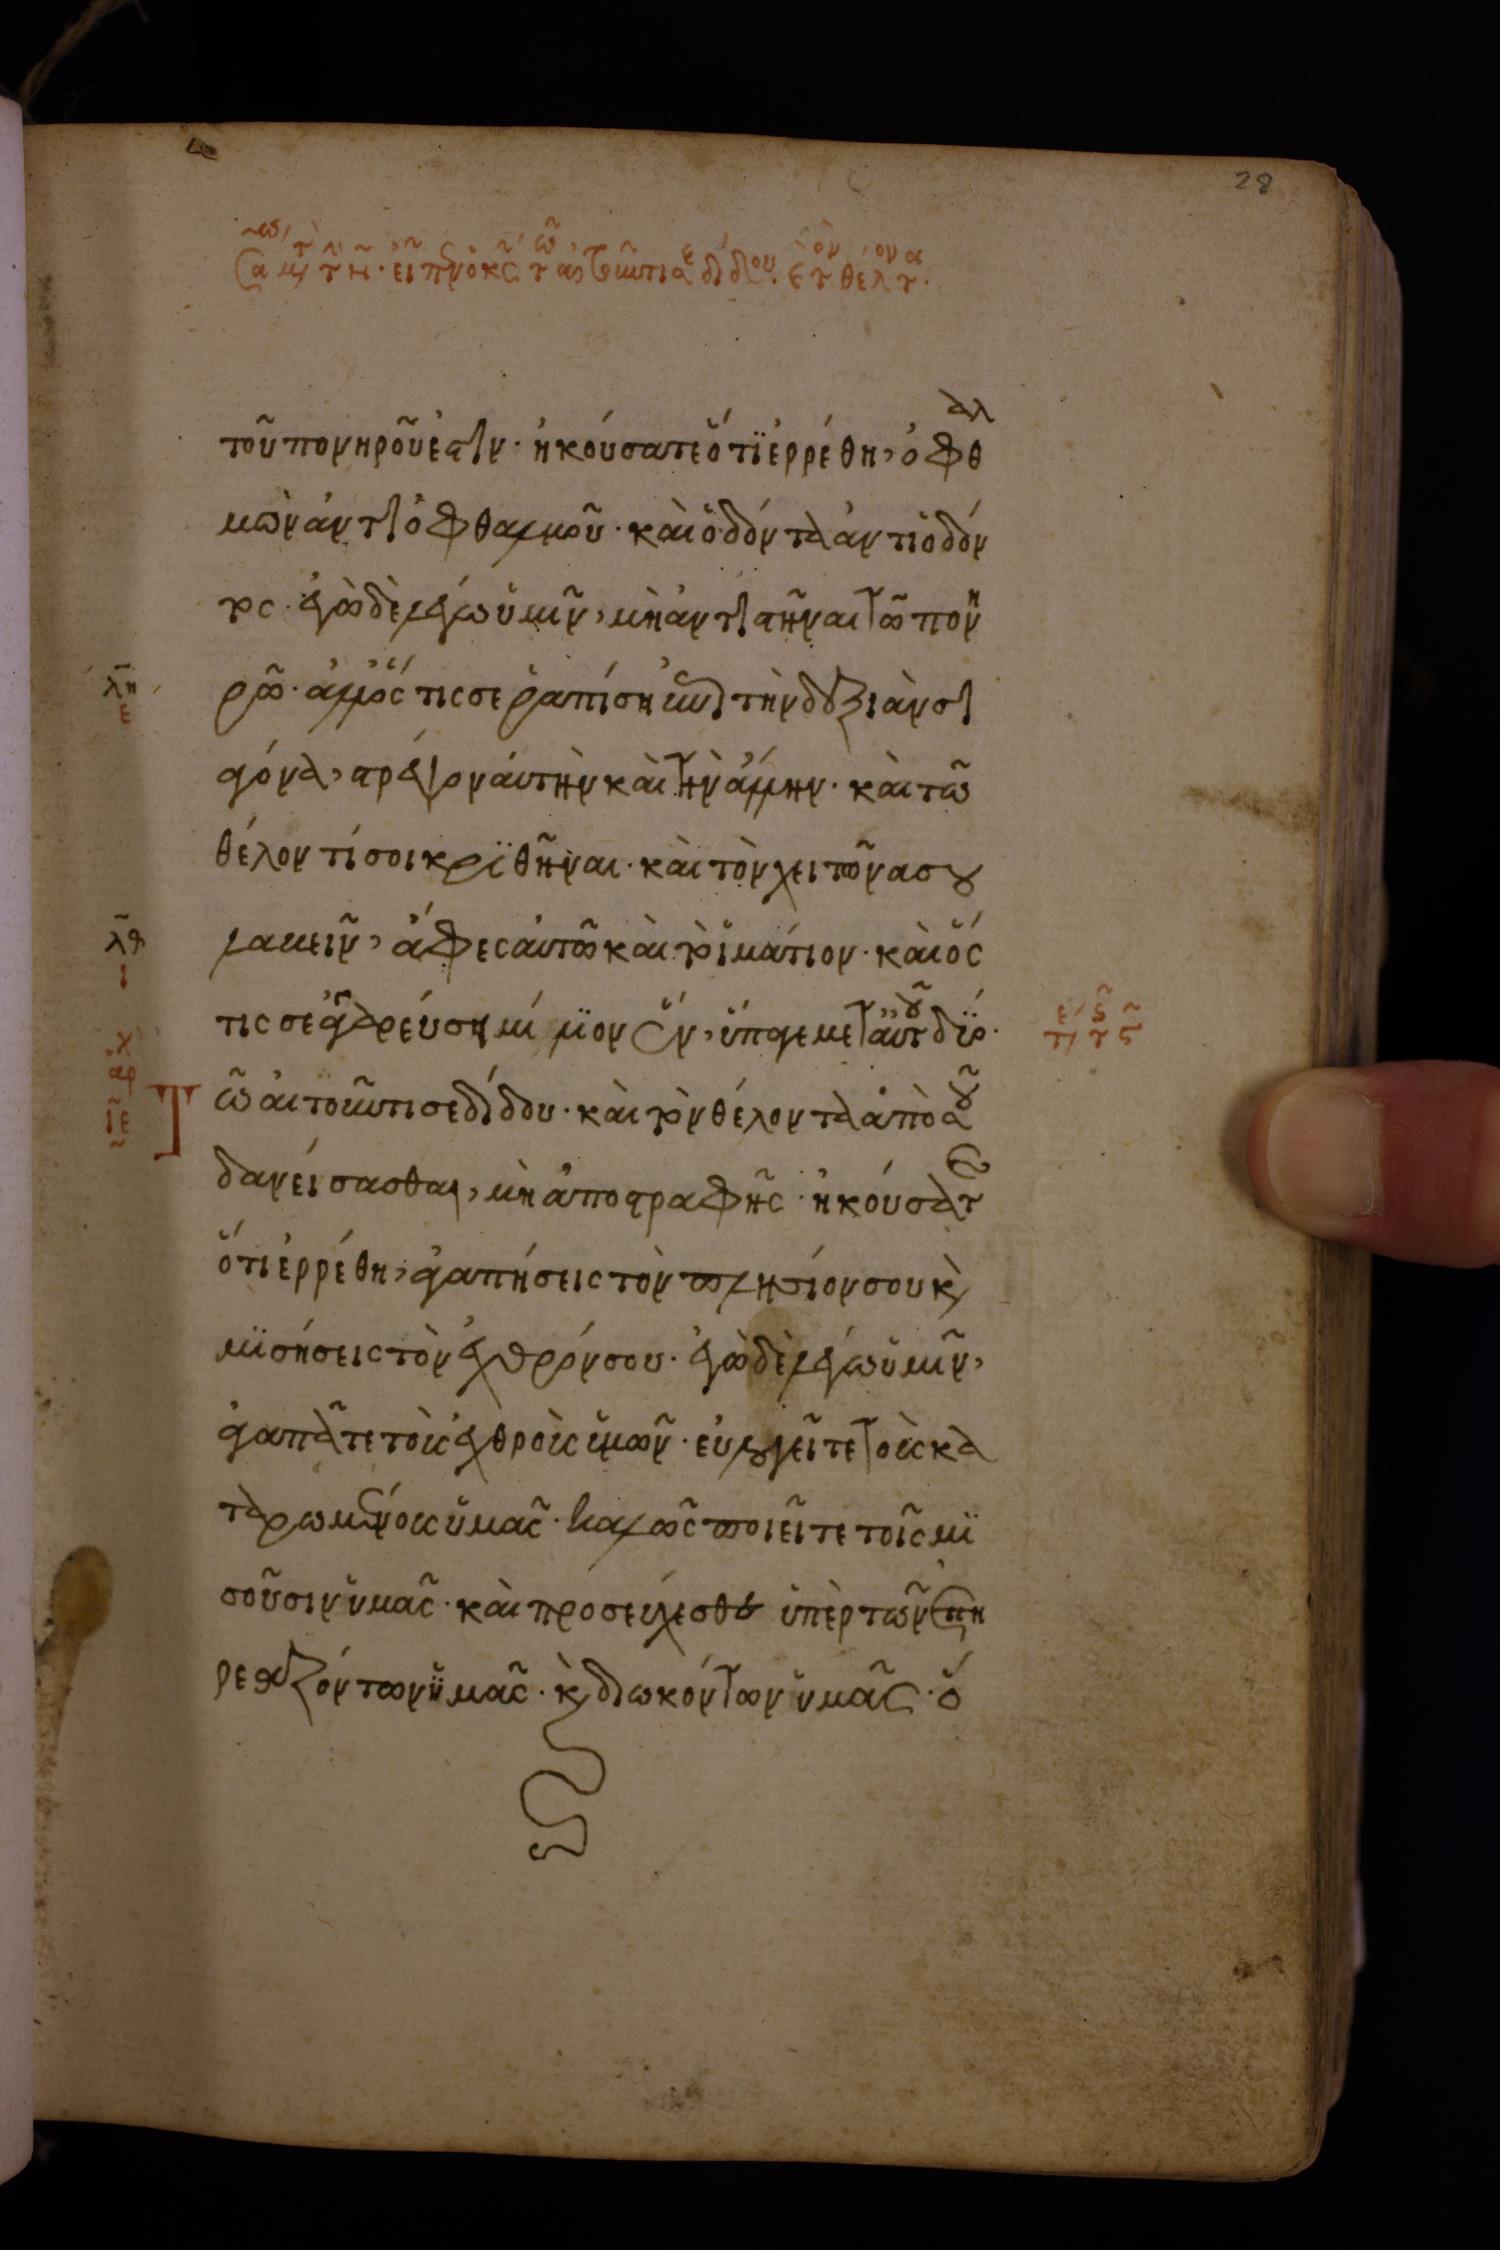 28
τοῦ πονηροῦ ἐστιν· ἠκούσατε ὅτι ἐρρέθη, ὀφθαλ
μὼν ἀντὶ ὀφθαλμοῦ· καὶ ὀδόντα ἀντὶ ὀδόν
τος· ἐγὼ δὲ λέγω ὑμῖν, μὴ ἀντιστῆναι τῶ πονη
ρῶ· ἀλλ' ὅστις σε ῥαπίση ἐπὶ τὴν δεξιὰν σι
αγόνα, στρέψον αὐτὴν καὶ τὴν ἄλλην· καὶ τῶ
θέλοντί σοι κριθῆναι· καὶ τὸν χειτῶνα σου
λαβεῖν, ἄφες αὐτῶ καὶ τὸ ἱμάτιον· καὶ ὅς
τις σε ἀγγαρεύση μίλιον ἕν, ὕπαγε μετ' αὐτοῦ δύο·
τῶ αἰτοῦντι σε δίδου· καὶ τὸν θέλοντα ἀπὸ σοῦ
δανείσασθαι, μὴ ἀποστραφῆς· ἠκούσατε
ὅτι ἐρρέθη, ἀγαπήσεις τὸν πλησίον σου κὶ
μισήσεις τὸν ἐχθρόν σου· ἐγὼ δὲ λέγω ὑμῖν,
ἀγαπᾶτε τοὺς ἐχθροὺς ὑμῶν· εὐλογεῖτε τοὺς κα
ταρωμένους ὑμᾶς· καλῶς ποιεῖτε τοῖς μι
σοῦσιν ὑμᾶς· καὶ προσεύχεσθε ὑπὲρ τῶν ἐπη
ρεαζόντων ὑμᾶς· κὶ διωκόντων ὑμᾶς· ὅ
λη
ε
λθ
ι